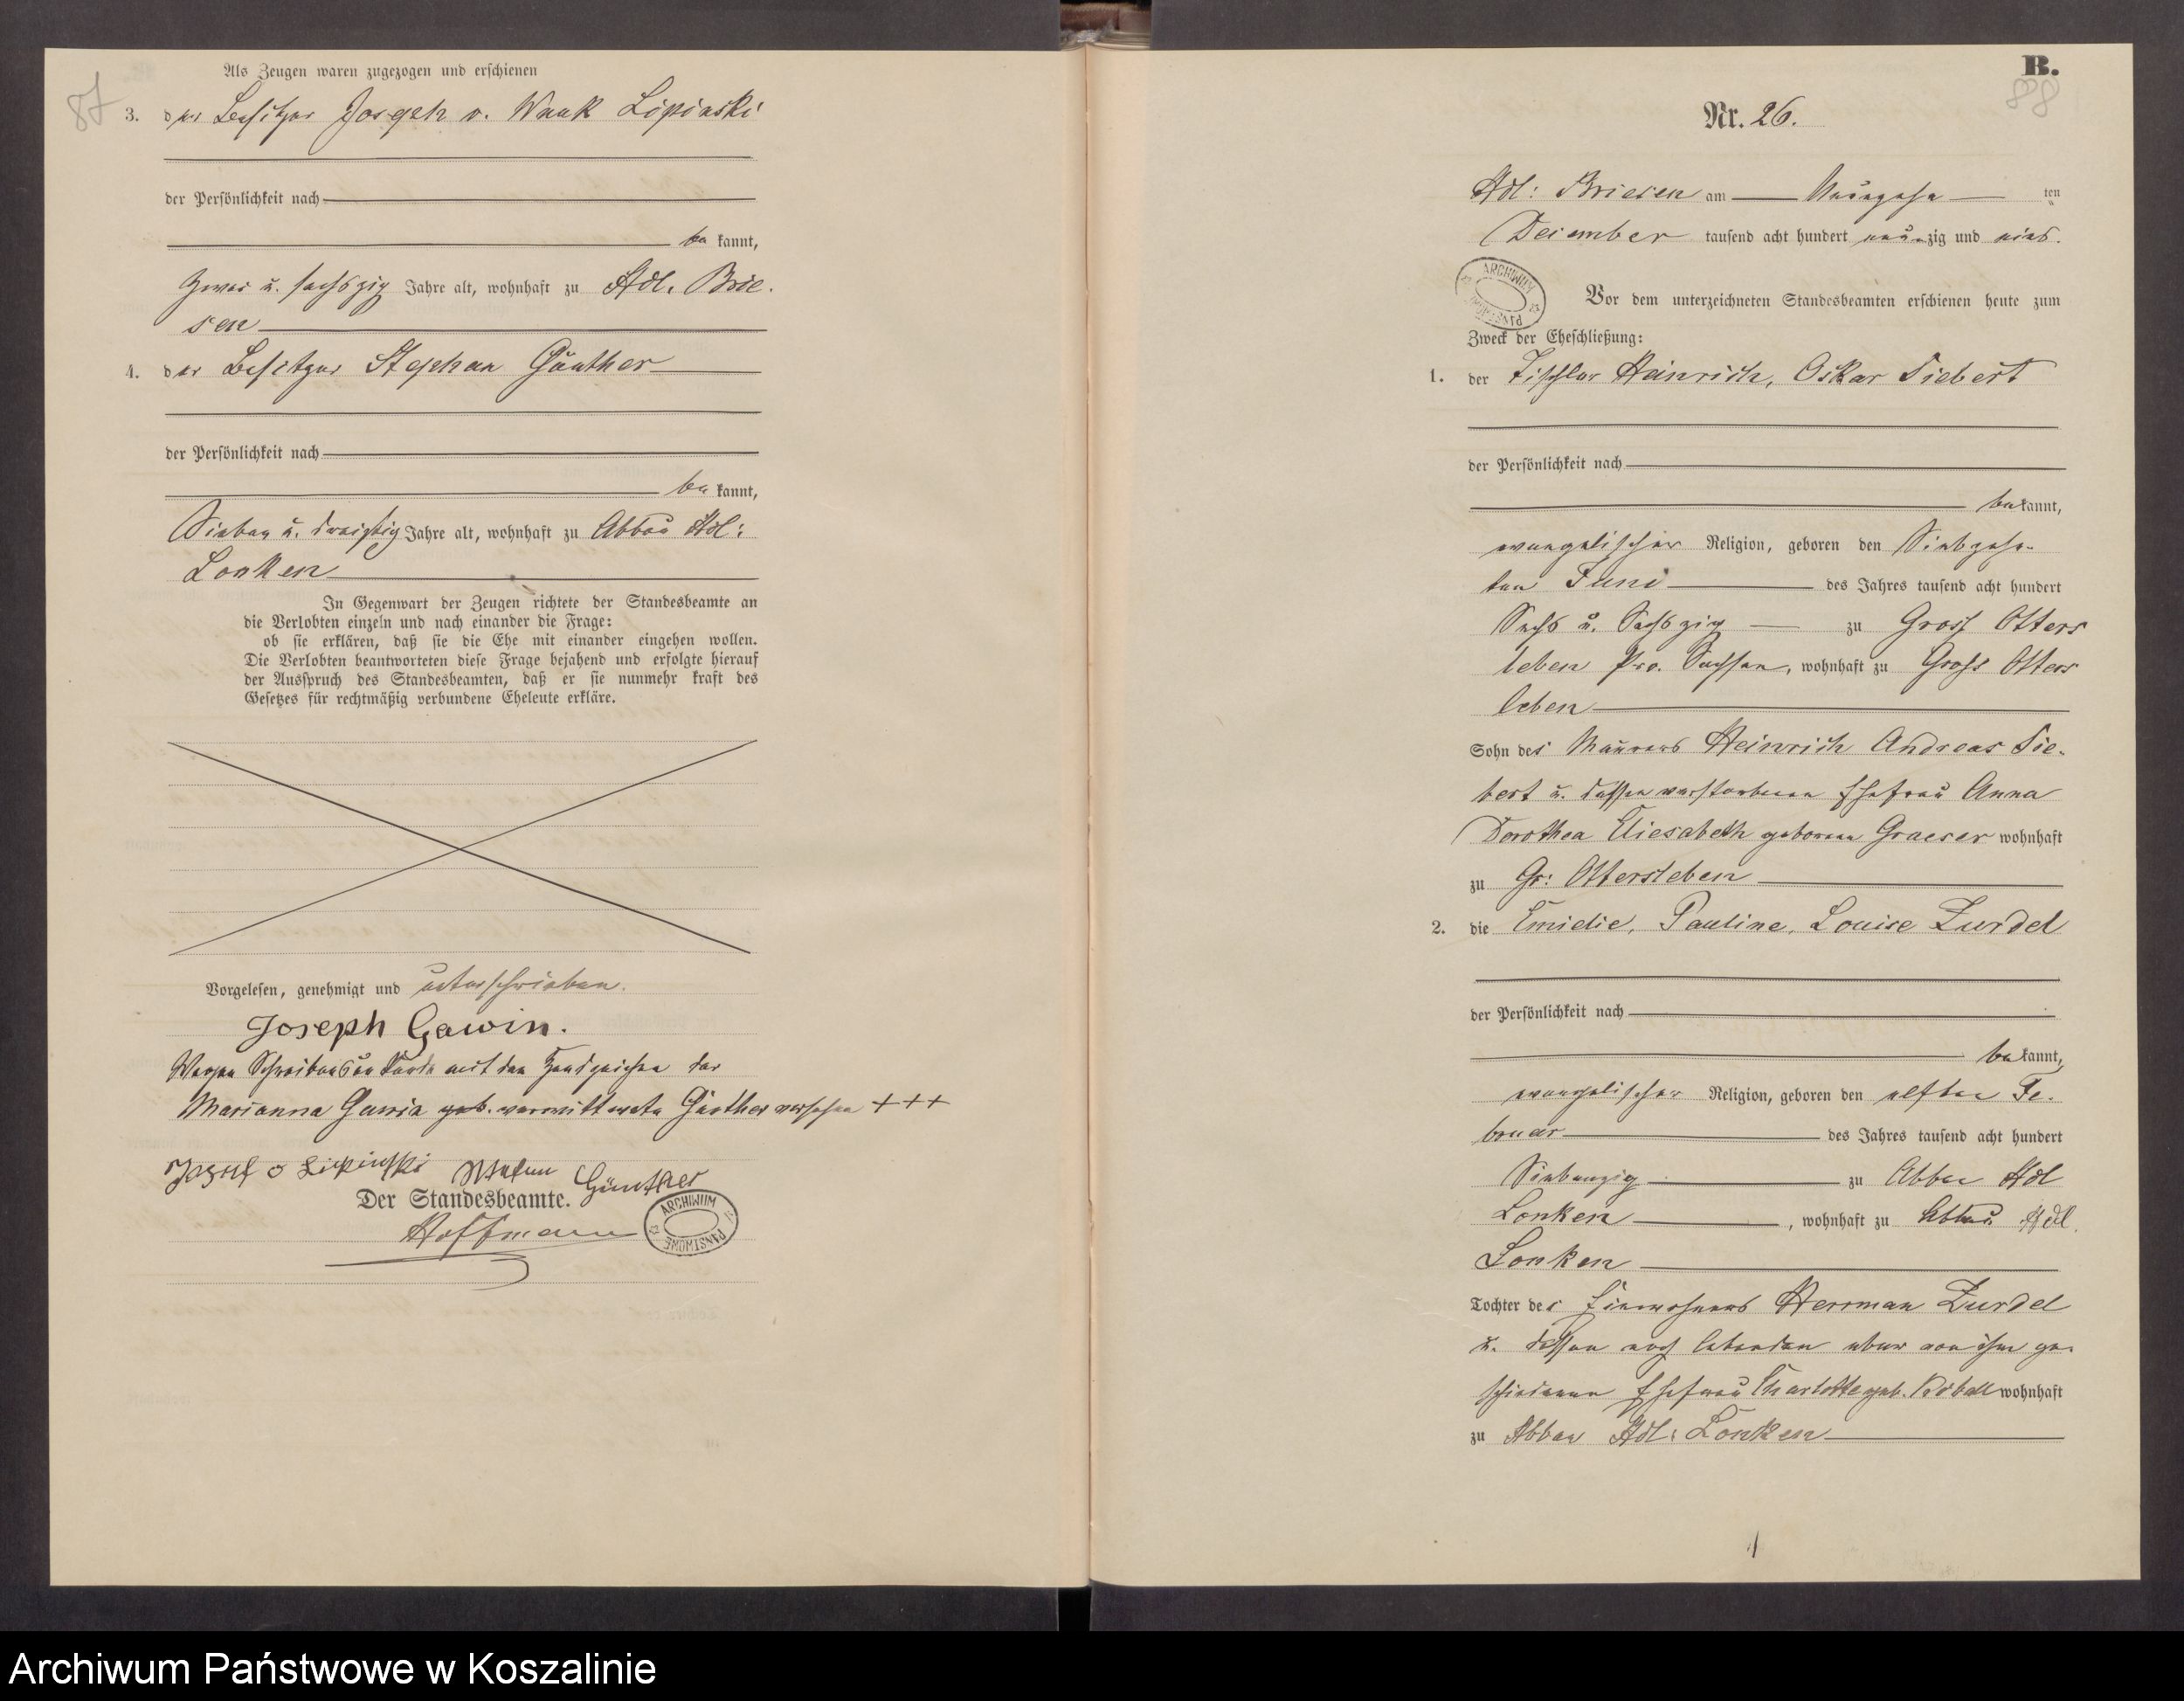 87
Als Zeugen waren zugezogen und erschienen
3. der Besitzer Joseph v. Wnuk Lipinski
der Persönlichkeit nach
be kannt,
zwei u. sechszig Jahre alt, wohnhaft zu Adl. Brie-
sen
4. der Besitzer Stephan Günther
der Persönlichkeit nach
be kannt,
Sieben u. dreißig Jahre alt, wohnhaft zu Abbau Adl:
Lonken
In Gegenwart der Zeugen richtete der Standesbeamte an
die Verlobten einzeln und nach einander die Frage:
ob sie erklären, daß sie die Ehe mit einander eingehen wollen.
Die Verlobten beantworteten diese Frage bejahend und erfolgte hierauf
der Ausspruch des Standesbeamten, daß er sie nunmehr kraft des
Gesetzes für rechtmäßig verbundene Eheleute erkläre.
Vorgelesen, genehmigt und unterschrieben.
Joseph Gawin.
Wegen Schreibensunkunde mit den Handzeichen der
Marianna geb. verwittwete Günther versehen +++
Josef v Lipinski Stefan Günther
Der Standesbeamte.
Hoffmann
ARCHIWUM PAŃSTWOWE
B.
88
Nr. 26.
Adl: Briesen am Neunzehn ten
December tausend acht hundert neunzig und eins.
ARCHIWUM PAŃSTWOWE
Vor dem unterzeichneten Standesbeamten erschienen heute zum
Zweck der Eheschließung:
1. der Tischler Heinrich, Oskar Siebert
der Persönlichkeit nach
be kannt,
evangelischer Religion, geboren den Siebzehn-
ten Juni des Jahres tausend acht hundert
Sechs u. Sechszig zu Gross Otters
leben Pro. Sachsen, wohnhaft zu Gross Otters
leben
Sohn des Maurers Heinrich Andreas Sie-
bert u. dessen verstorbenen Ehefrau Anna
Dorothea Eliesabeth geborenen Graeser wohnhaft
zu Gr: Ottersleben
2. die Emielie, Pauline, Louise Zurdel
der Persönlichkeit nach
be kannt,
evangelischer Religion, geboren den elften Fe-
bruar des Jahres tausend acht hundert
Siebenzig zu Abbau Adl
Lonken, wohnhaft zu Abbau Adl.
Lonken
Tochter des Einwohners Herrman Zurdel
u. dessen noch lebenden aber von ihm ge-
schiedenen Ehefrau Charlotte geb. wohnhaft
zu Abbau Adl: Lonken
Archiwum Państwowe w Koszalinie